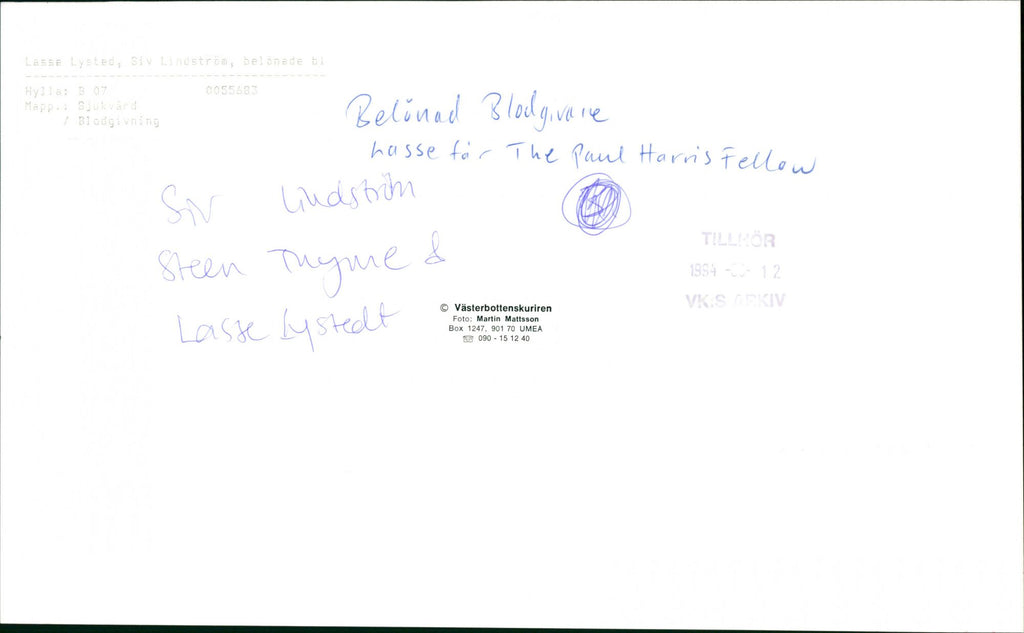 Lasse Lysted, Siv Lindström, belönade bl
Hylla: B 07 0055683
Mapp.: Sjukvård
/ Blodgivning
Belönad Blodgivare
Lasse får The Paul Harris Fellow
Siv Lindström
Steen Thyme &
Lasse Lystedt
© Västerbottenskuriren
Foto: Martin Mattsson
Box 1247, 901 70 UMEA
☏ 090 - 15 12 40
TILLHÖR
1994 - 12
VK:S ARKIV